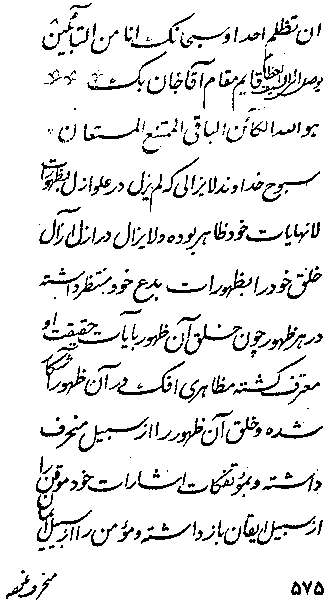 ان تظلم احدا و سبحانک انا من التائبین
قایم مقام آقاجان بک
هو الله الکائن الباقی الممتنع المستعان
سبوح خداوند لایزالی که لم یزل در علو ازل بظهورات
لانهایات خود ظاهر بوده و لایزال در ازل آزال
خلق خود را بظهورات بدع خود منتظر داشته
در هر ظهور چون خلق آن ظهور بآیات حقیقت او
معترف گشته مظاهری افک در آن ظهور آشکار
شده و خلق آن ظهور را از سبیل منحرف
داشته و بمؤتفکات اشارات خود موقن را
از سبیل ایقان باز داشته و مؤمن را از سبیل ایمان
منحرف
۵۷۵